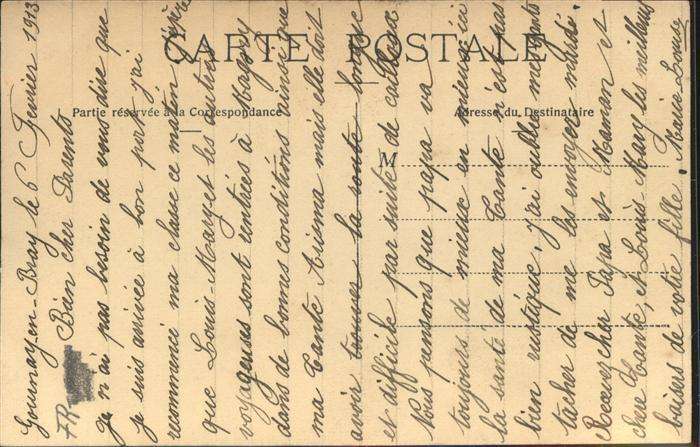 CARTE POSTALE
Partie réservée à la Correspondance
Adresse du Destinataire
M
Gournay-en-Bray le 6 Février 1913
Bien cher Parents
FR
Je n'ai pas besoin de vous dire que
je suis arrivée à bon port, j'ai
recommencé ma classe ce matin
que Louis-Mary et les autres
voyageurs sont rentrés à Magny
dans de bonnes conditions ainsi que
ma Tante mais elle doit
avoir trouver la route longue
et difficile par suite de
Nous pensons que papa va
toujours de mieux en mieux ici
la santé de ma Tante n'est pas
bien rustique, j'ai oublié mes gants
tâcher de me les envoyer mardi.
Recevez cher Papa et Maman et
chère Tante, et Louis Mary les meilleurs
baisers de votre fille. Marie-Louise